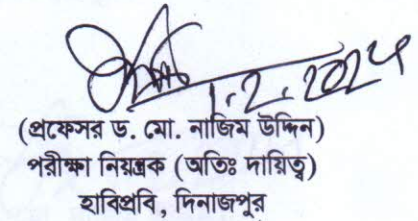 1.2.2025
(প্রফেসর ড. মো. নাজিম উদ্দিন)
পরীক্ষা নিয়ন্ত্রক (অতিঃ দায়িত্ব)
হাবিপ্রবি, দিনাজপুর